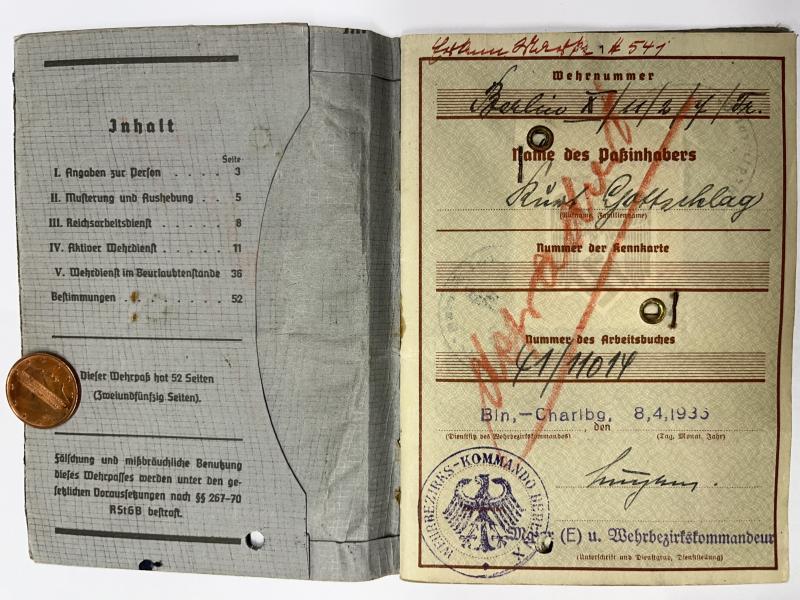 Inhalt
Seite
I. Angaben zur Person . . . . . 3
II. Musterung und Aushebung . . 5
III. Reichsarbeitsdienst . . . . . . 8
IV. Aktiver Wehrdienst . . . . . . 11
V. Wehrdienst im Beurlaubtenstande 36
Bestimmungen . . . . . . . . . 52
Dieser Wehrpaß hat 52 Seiten
(Zweiundfünfzig Seiten).
Fälschung und mißbräuchliche Benutzung
dieses Wehrpasses werden unter den ge-
setzlichen Voraussetzungen nach §§ 267-70
RStGB bestraft.
541
Wehrnummer
Berlin X/11/2/4/
Name des Paßinhabers
Kurt Gottschlag
(Rufname, Familienname)
Nummer der Kennkarte
Nummer des Arbeitsbuches
41/11014
Bln,-Charlbg, den 8,4,1936
(Dienstsitz des Wehrbezirkskommandos) (Tag, Monat, Jahr)
WEHRBEZIRKS-KOMMANDO BERLIN X
Major (E) u. Wehrbezirkskommandeur
(Unterschrift und Dienstgrad, Dienststellung)